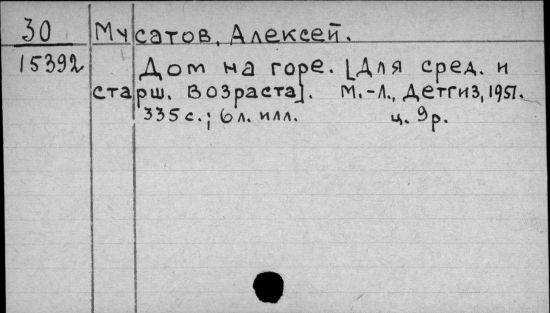 30 Мусатов, Алексей.
15392 Дом на горе. [Для сред. и
старш. возраста]. М.-Л., Детгиз, 1951.
335 с.; 6 л. илл. ц. 9р.